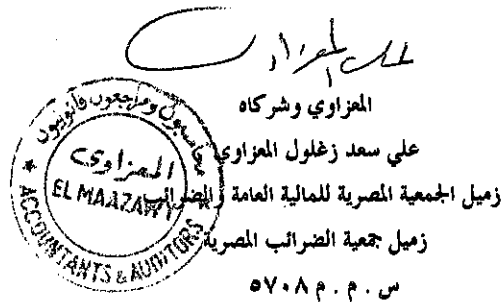 المعزاوي وشركاه
علي سعد زغلول المعزاوي
زميل الجمعية المصرية للمالية العامة والضرائب
زميل جمعية الضرائب المصرية
س . م . م ٥٧٠٨
محاسبون ومراجعون قانونيون
المعزاوى
EL MAAZAWY
ACCOUNTANTS & AUDITORS